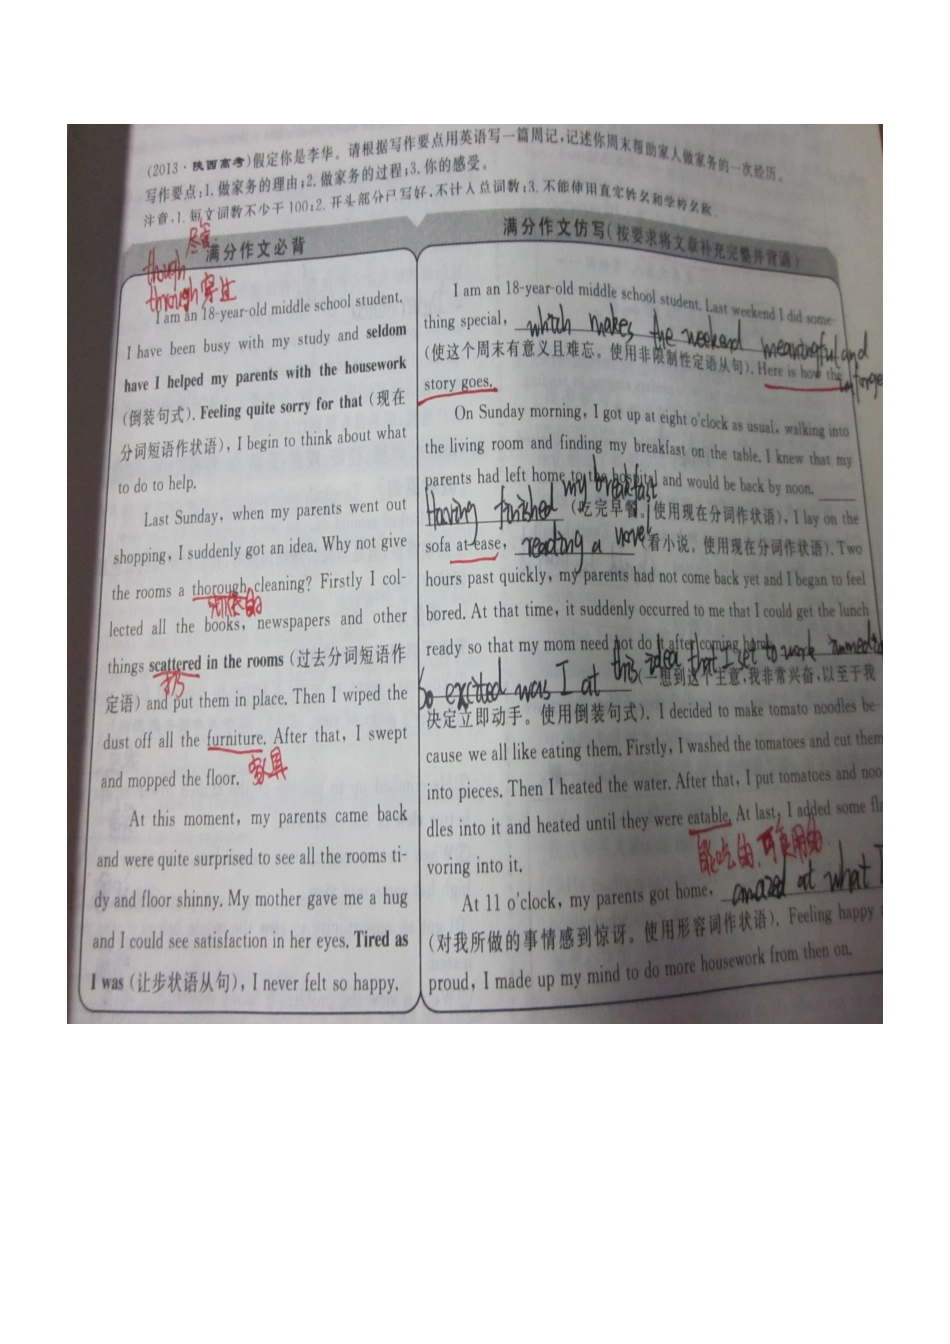 (2013·陕西高考)假定你是李华。请根据写作要点用英语写一篇周记,记述你周末帮助家人做家务的一次经历。
写作要点:1. 做家务的理由;2. 做家务的过程;3. 你的感受。
注意:1. 短文词数不少于100;2. 开头部分已写好,不计入总词数;3. 不能使用真实姓名和学校名称.
满分作文必背
though 尽管
through 穿过
I am an 18-year-old middle school student.
I have been busy with my study and seldom
have I helped my parents with the housework
(倒装句式). Feeling quite sorry for that (现在
分词短语作状语), I begin to think about what
to do to help.
Last Sunday, when my parents went out
shopping, I suddenly got an idea. Why not give
the rooms a thorough cleaning? Firstly I col-
彻底的
lected all the books, newspapers and other
things scattered in the rooms (过去分词短语作
扔
定语) and put them in place. Then I wiped the
dust off all the furniture. After that, I swept
家具
and mopped the floor.
At this moment, my parents came back
and were quite surprised to see all the rooms ti-
dy and floor shinny. My mother gave me a hug
and I could see satisfaction in her eyes. Tired as
I was (让步状语从句), I never felt so happy.
满分作文仿写(按要求将文章补充完整并背诵)
I am an 18-year-old middle school student. Last weekend I did some-
thing special, which makes the weekend meaningful and
(使这个周末有意义且难忘。使用非限制性定语从句). Here is how the
story goes.
On Sunday morning, I got up at eight o'clock as usual, walking into
the living room and finding my breakfast on the table. I knew that my
parents had left home to the hospital and would be back by noon.
Having finished my breakfast (吃完早餐。使用现在分词作状语), I lay on the
sofa at ease, reading a novel (看小说。使用现在分词作状语). Two
hours past quickly, my parents had not come back yet and I began to feel
bored. At that time, it suddenly occurred to me that I could get the lunch
ready so that my mom need not do it after coming home.
So excited was I at this idea that I set to work (一想到这个主意,我非常兴奋,以至于我
决定立即动手。使用倒装句式). I decided to make tomato noodles be-
cause we all like eating them. Firstly, I washed the tomatoes and cut them
into pieces. Then I heated the water. After that, I put tomatoes and noo
dles into it and heated until they were eatable. At last, I added some fla
能吃的,可食用的
voring into it.
At 11 o'clock, my parents got home, amazed at what I
(对我所做的事情感到惊讶。使用形容词作状语). Feeling happy
proud, I made up my mind to do more housework from then on.